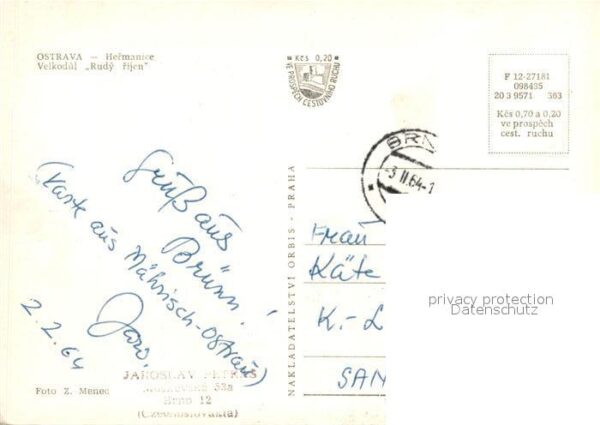 OSTRAVA — Heřmanice
Velkodůl „Rudý říjen"
Kčs 0,20
VE PROSPĚCH CESTOVNÍHO RUCHU
F 12-27181
098435
20 3 9571 363
Kčs 0,70 a 0,20
ve prospěch
cest. ruchu
BRN
-3 II.64-1
Gruß aus
Brünn!
(Karte aus Mährisch-Ostrau)
Jaro.
2.2.64
NAKLADATELSTVÍ ORBIS - PRAHA
Frau
Käte
K.-L
SAN
privacy protection
Datenschutz
JAROSLAV PETRÁS
52a
Brno 12
(Czechoslovakia)
Foto Z. Menec